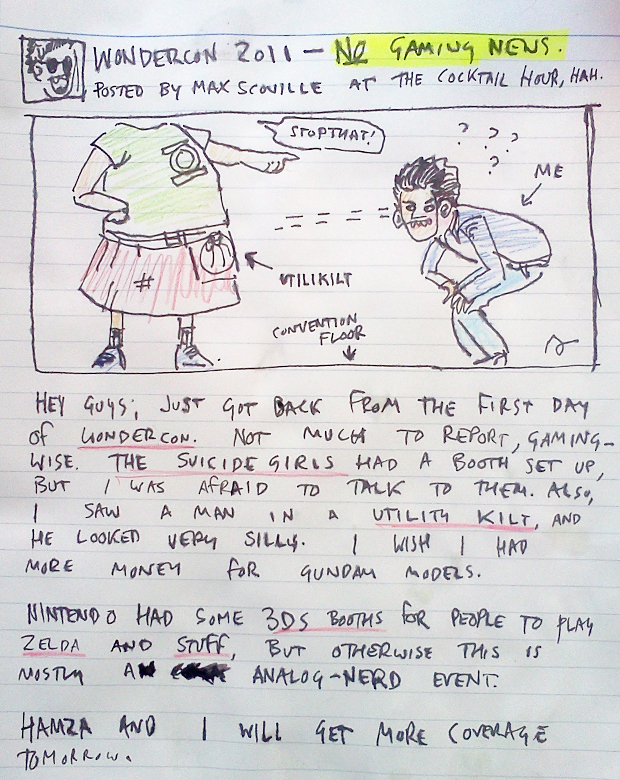 WONDERCON 2011 – NO GAMING NEWS.
POSTED BY MAX SCOVILLE AT THE COCKTAIL HOUR, HAH.
STOP THAT!
? ? ?
?
ME
UTILIKILT
#
CONVENTION
FLOOR
HEY GUYS, JUST GOT BACK FROM THE FIRST DAY
OF WONDERCON. NOT MUCH TO REPORT, GAMING-
WISE. THE SUICIDE GIRLS HAD A BOOTH SET UP,
BUT I WAS AFRAID TO TALK TO THEM. ALSO,
I SAW A MAN IN A UTILITY KILT, AND
HE LOOKED VERY SILLY. I WISH I HAD
MORE MONEY FOR GUNDAM MODELS.
NINTENDO HAD SOME 3DS BOOTHS FOR PEOPLE TO PLAY
ZELDA AND STUFF, BUT OTHERWISE THIS IS
MOSTLY A ANALOG-NERD EVENT.
HAMZA AND I WILL GET MORE COVERAGE
TOMORROW.